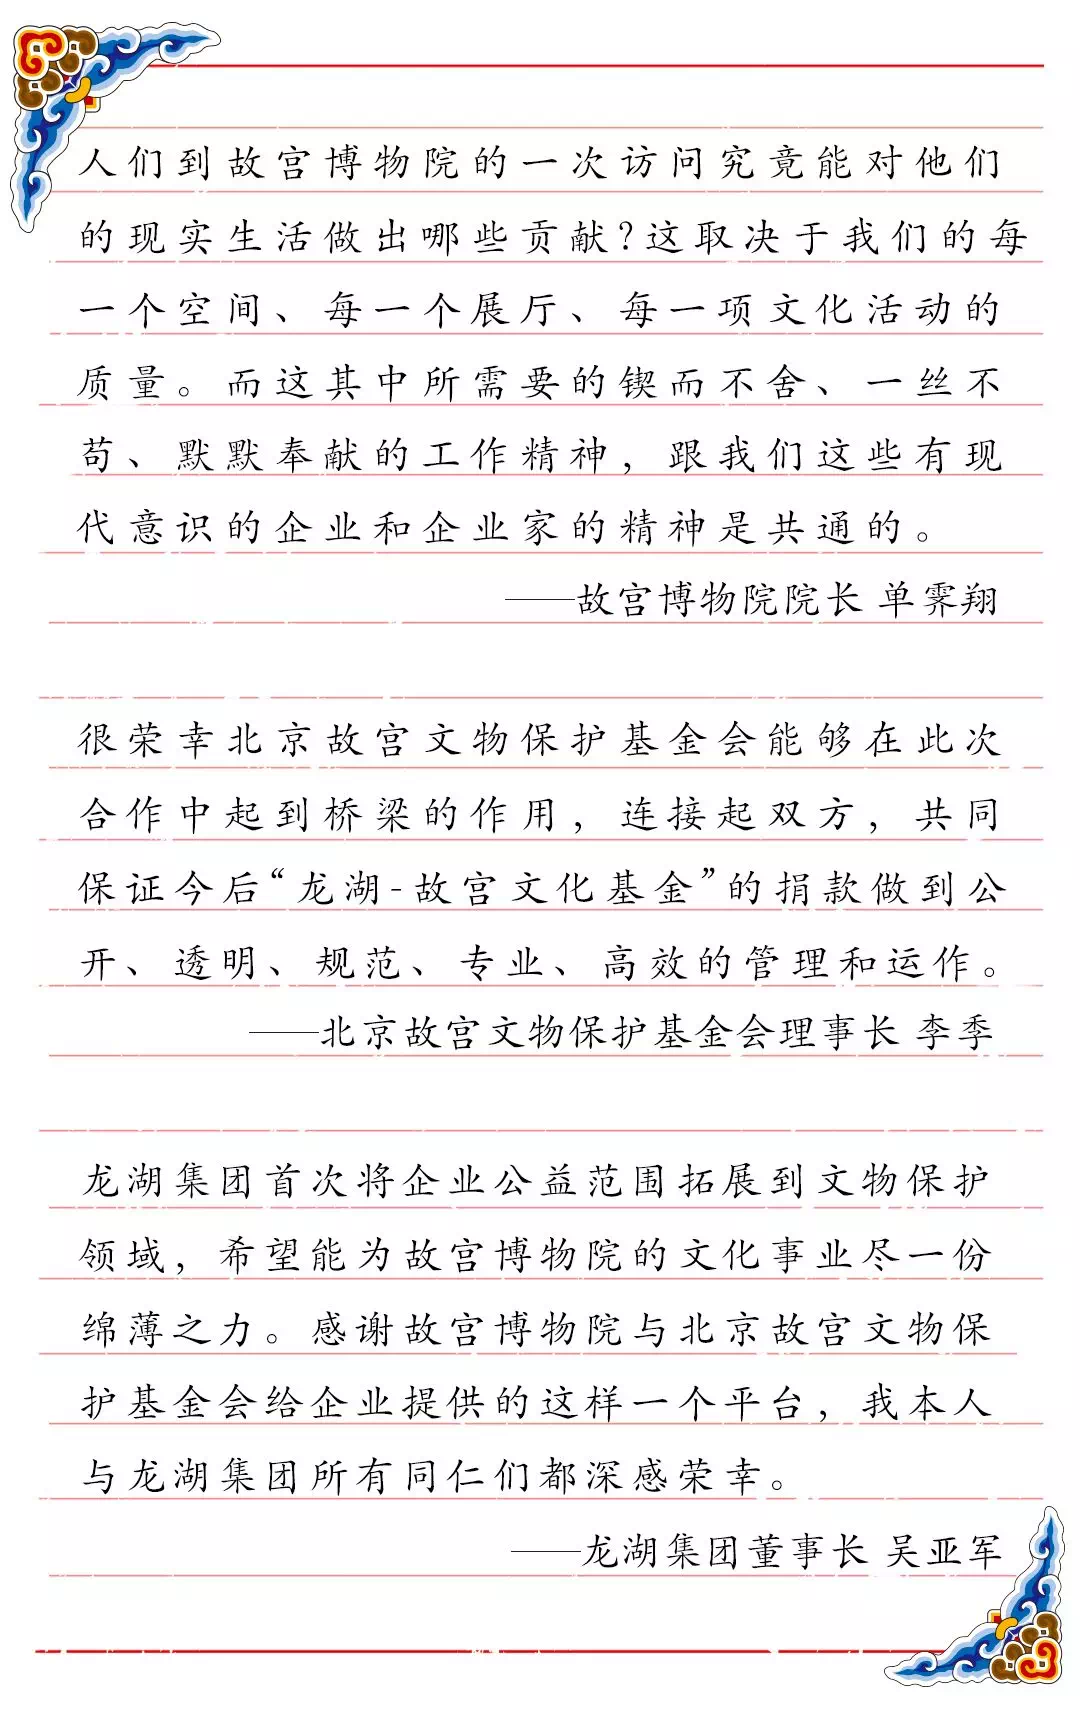 人们到故宫博物院的一次访问究竟能对他们
的现实生活做出哪些贡献?这取决于我们的每
一个空间、每一个展厅、每一项文化活动的
质量。而这其中所需要的锲而不舍、一丝不
苟、默默奉献的工作精神，跟我们这些有现
代意识的企业和企业家的精神是共通的。
——故宫博物院院长 单霁翔
很荣幸北京故宫文物保护基金会能够在此次
合作中起到桥梁的作用，连接起双方，共同
保证今后“龙湖-故宫文化基金”的捐款做到公
开、透明、规范、专业、高效的管理和运作。
——北京故宫文物保护基金会理事长 李季
龙湖集团首次将企业公益范围拓展到文物保护
领域，希望能为故宫博物院的文化事业尽一份
绵薄之力。感谢故宫博物院与北京故宫文物保
护基金会给企业提供的这样一个平台，我本人
与龙湖集团所有同仁们都深感荣幸。
——龙湖集团董事长 吴亚军